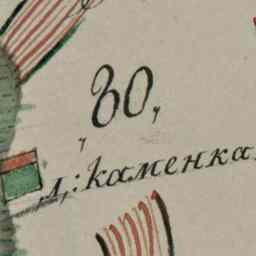 80,
д,: каменка.